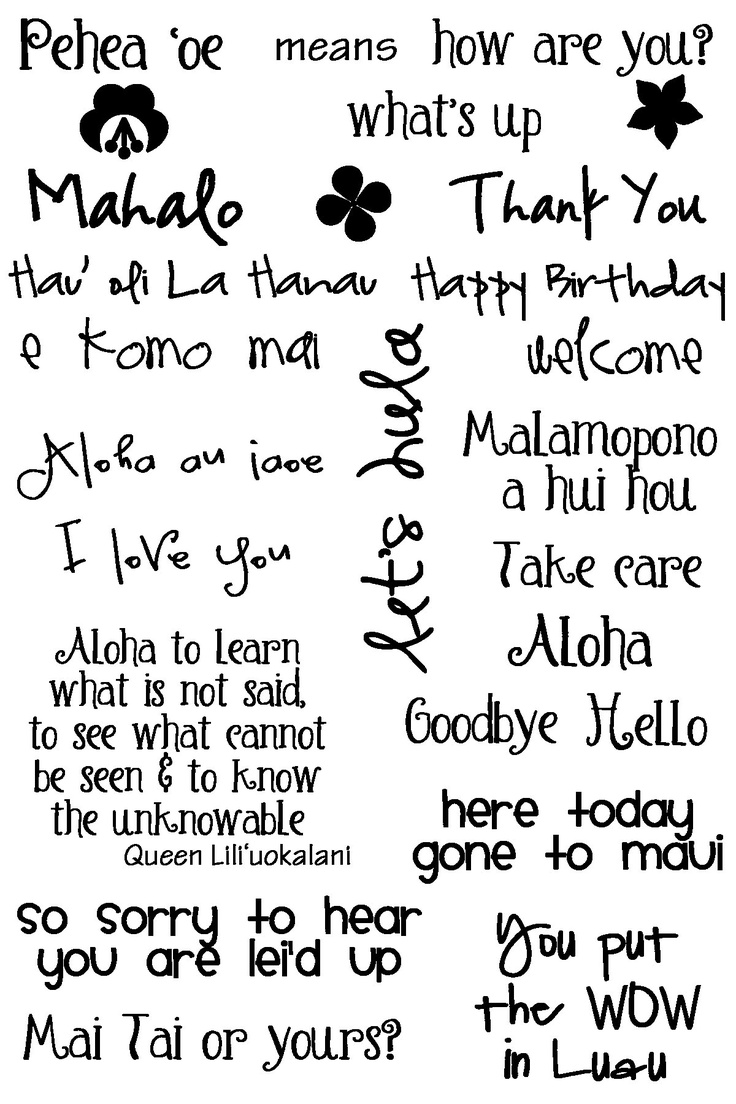 Pehea ‘oe means how are you?
what's up
Mahalo
Thank You
Hau' oli La Hanau
Happy Birthday
e komo mai
welcome
let's hula
Aloha au iaoe
Malamopono
a hui hou
I love you
Take care
Aloha
Aloha to learn
what is not said,
to see what cannot
be seen & to know
the unknowable
Queen Lili‘uokalani
Goodbye Hello
here today
gone to maui
so sorry to hear
you are lei'd up
You put
the WOW
in Luau
Mai Tai or yours?